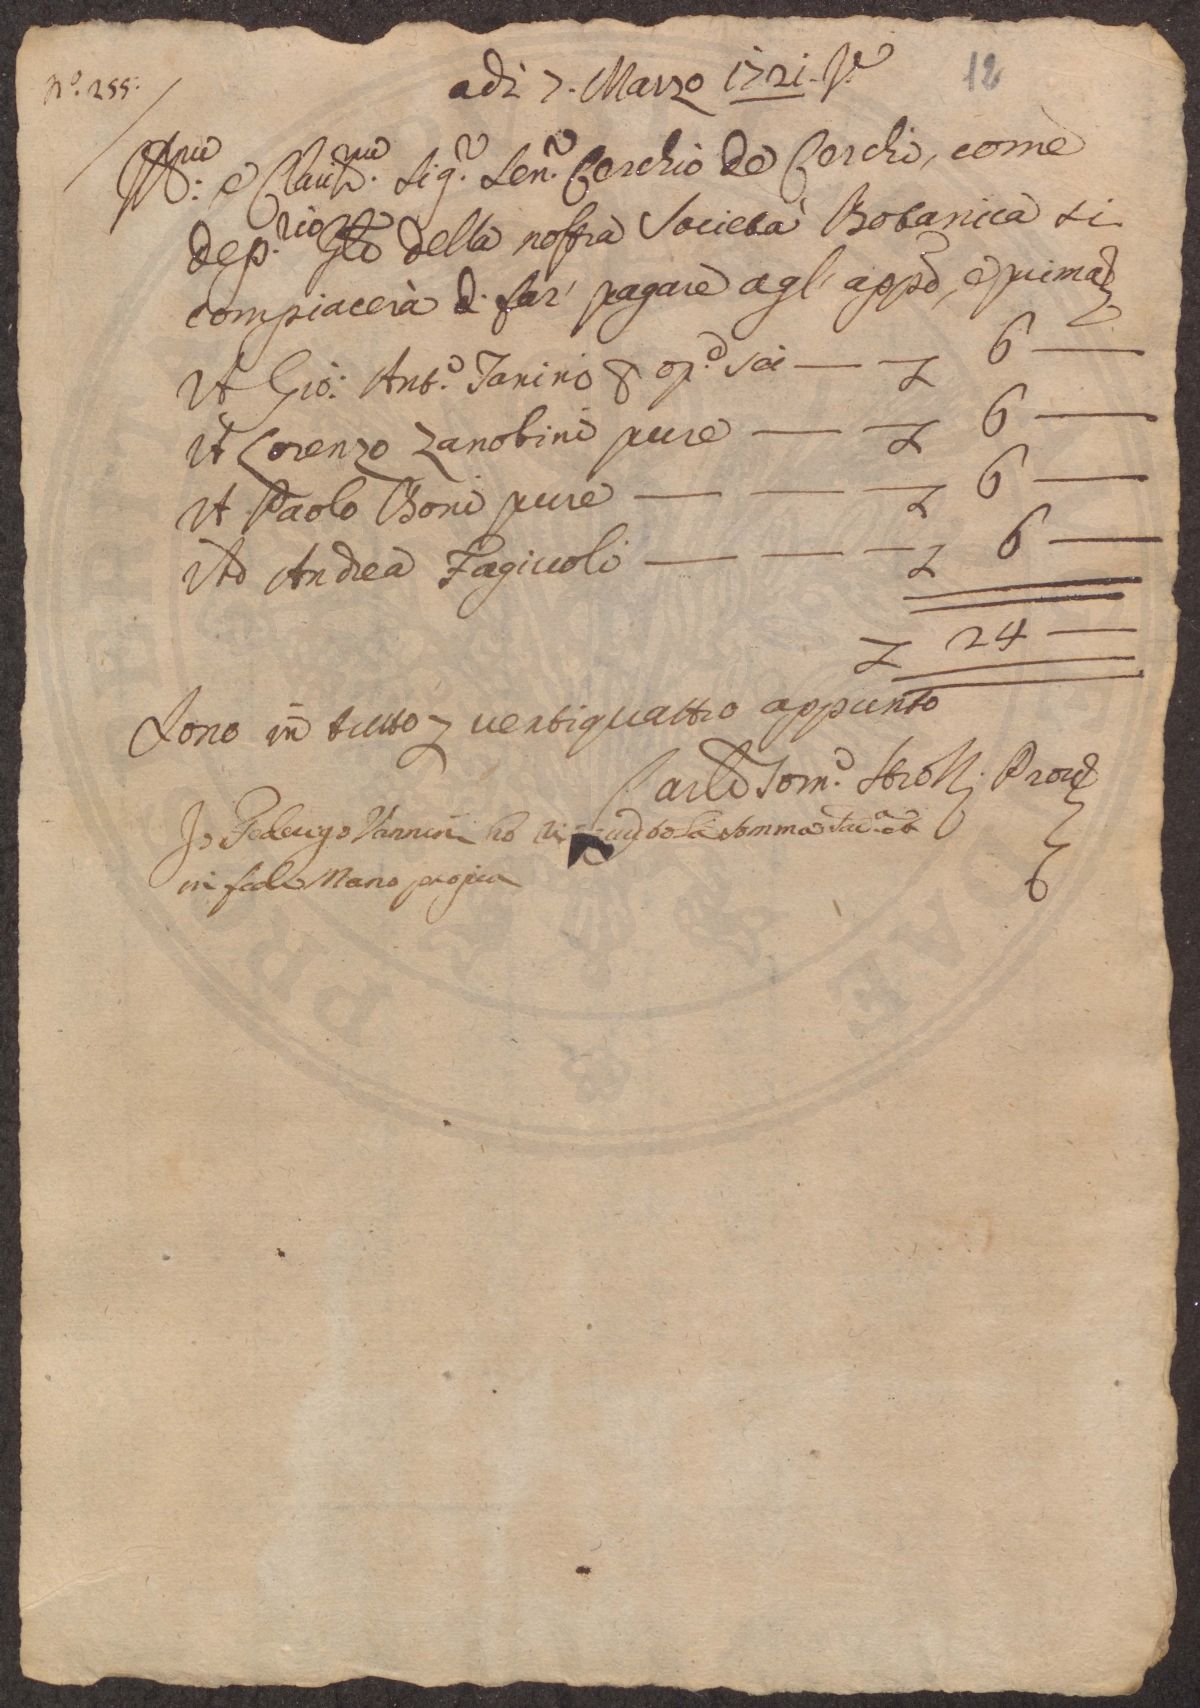 N.° 255:
adi 7. Marzo 1721.
12
Ill.mo e Clariss.mo Sig.re Sen.re Cerchio de Cerchi, come
dep.rio della nostra Società Botanica si
compiacerà di far' pagare agl' app.o, e prima
A Gio: Ant.o Janini op.e sei — 6 —
A Lorenzo Zanobini pure — 6 —
A Paolo Boni pure — 6 —
Ad Andrea Fagiuoli — 6 —
24 —
Sono in tutto ventiquattro appunto
Carlo Tom.o Strozzi Prov.e
Io Federigo Vannini ho la somma
in fede Mano propria